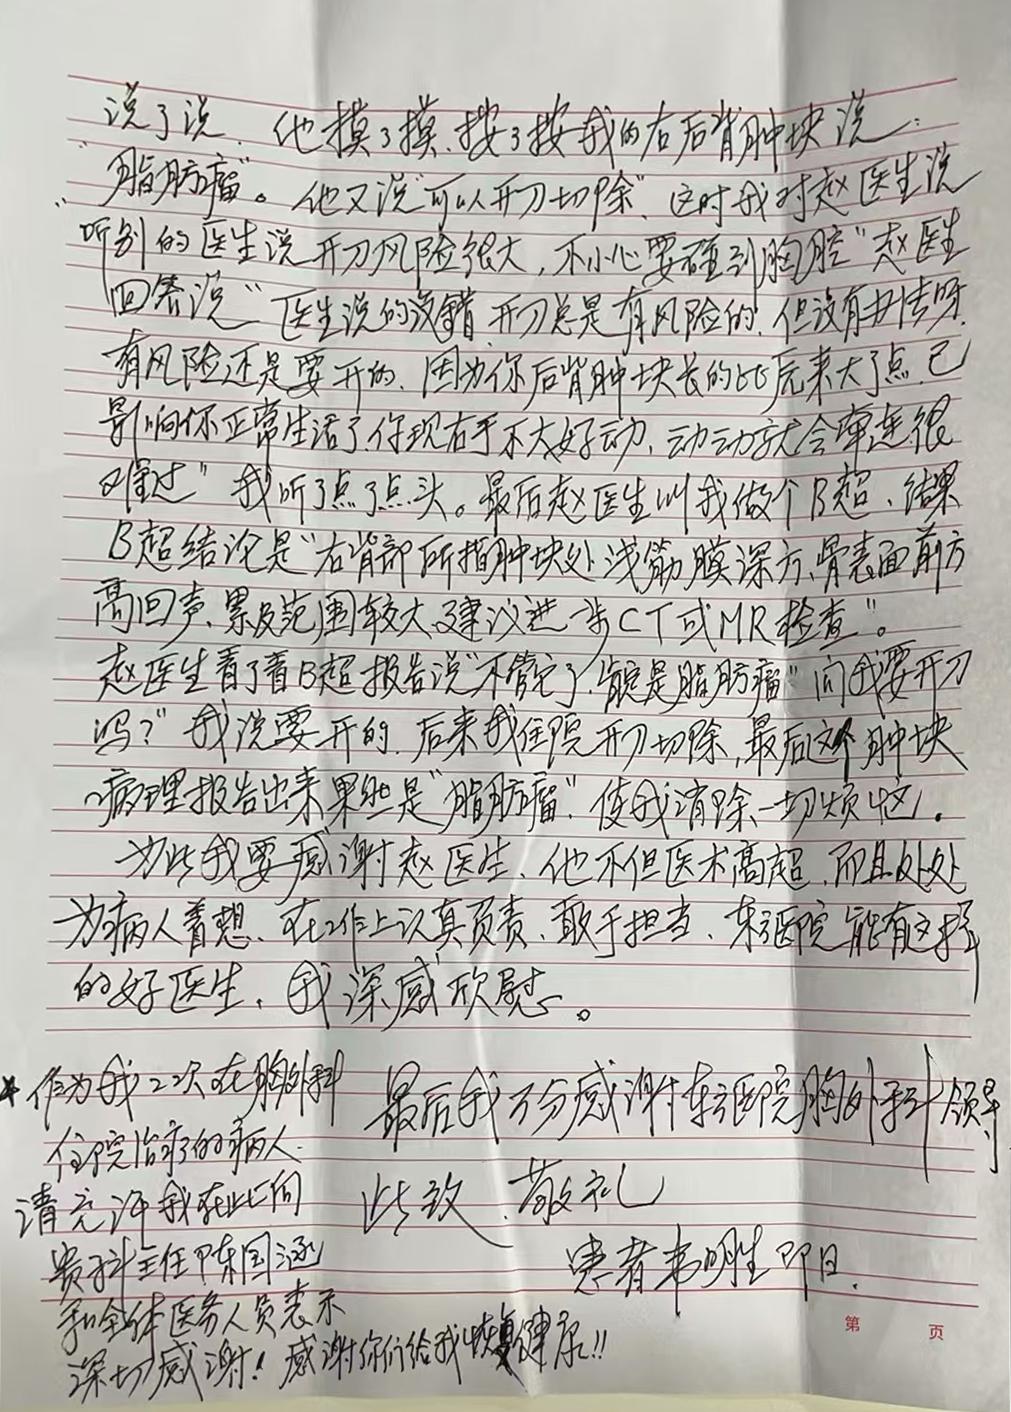 说了说、他摸了摸、按了按我的右后背肿块说:
"脂肪瘤"。他又说"可以开刀切除"、这时我对赵医生说
"听别的医生说开刀风险很大,不小心要碰到胸腔"赵医生
回答说"医生说的没错、开刀总是有风险的、但没有办法呀、
有风险还是要开的、因为你后背肿块长的比原来大了点、已
影响你正常生活了、你现右手不太好动、动动就会牵连很
难过"我听了点了点头。最后赵医生叫我做个B超、结果
B超结论是"右背部所指肿块处浅筋膜深方、骨表面前方
高回声、累及范围较大、建议进一步CT或MR检查"。
赵医生看了看B超报告说"不管它了、肯定是脂肪瘤"问我要开刀
吗?"我说要开的、后来我住院开刀切除,最后这个肿块
病理报告出来果然是"脂肪瘤"、使我消除一切烦恼。
为此我要感谢赵医生、他不但医术高超、而且处处
为病人着想、在工作上认真负责、敢于担当、东方医院能有这样
的好医生、我深感欣慰。
最后我万分感谢东方医院胸外科领导、
此致、敬礼
患者韦明生即日.
*作为我二次在胸外科
住院治疗的病人、
请允许我在此向
贵科主任陈国涵
和全体医务人员表示
深切感谢!感谢你们给我恢复健康!!
第 页